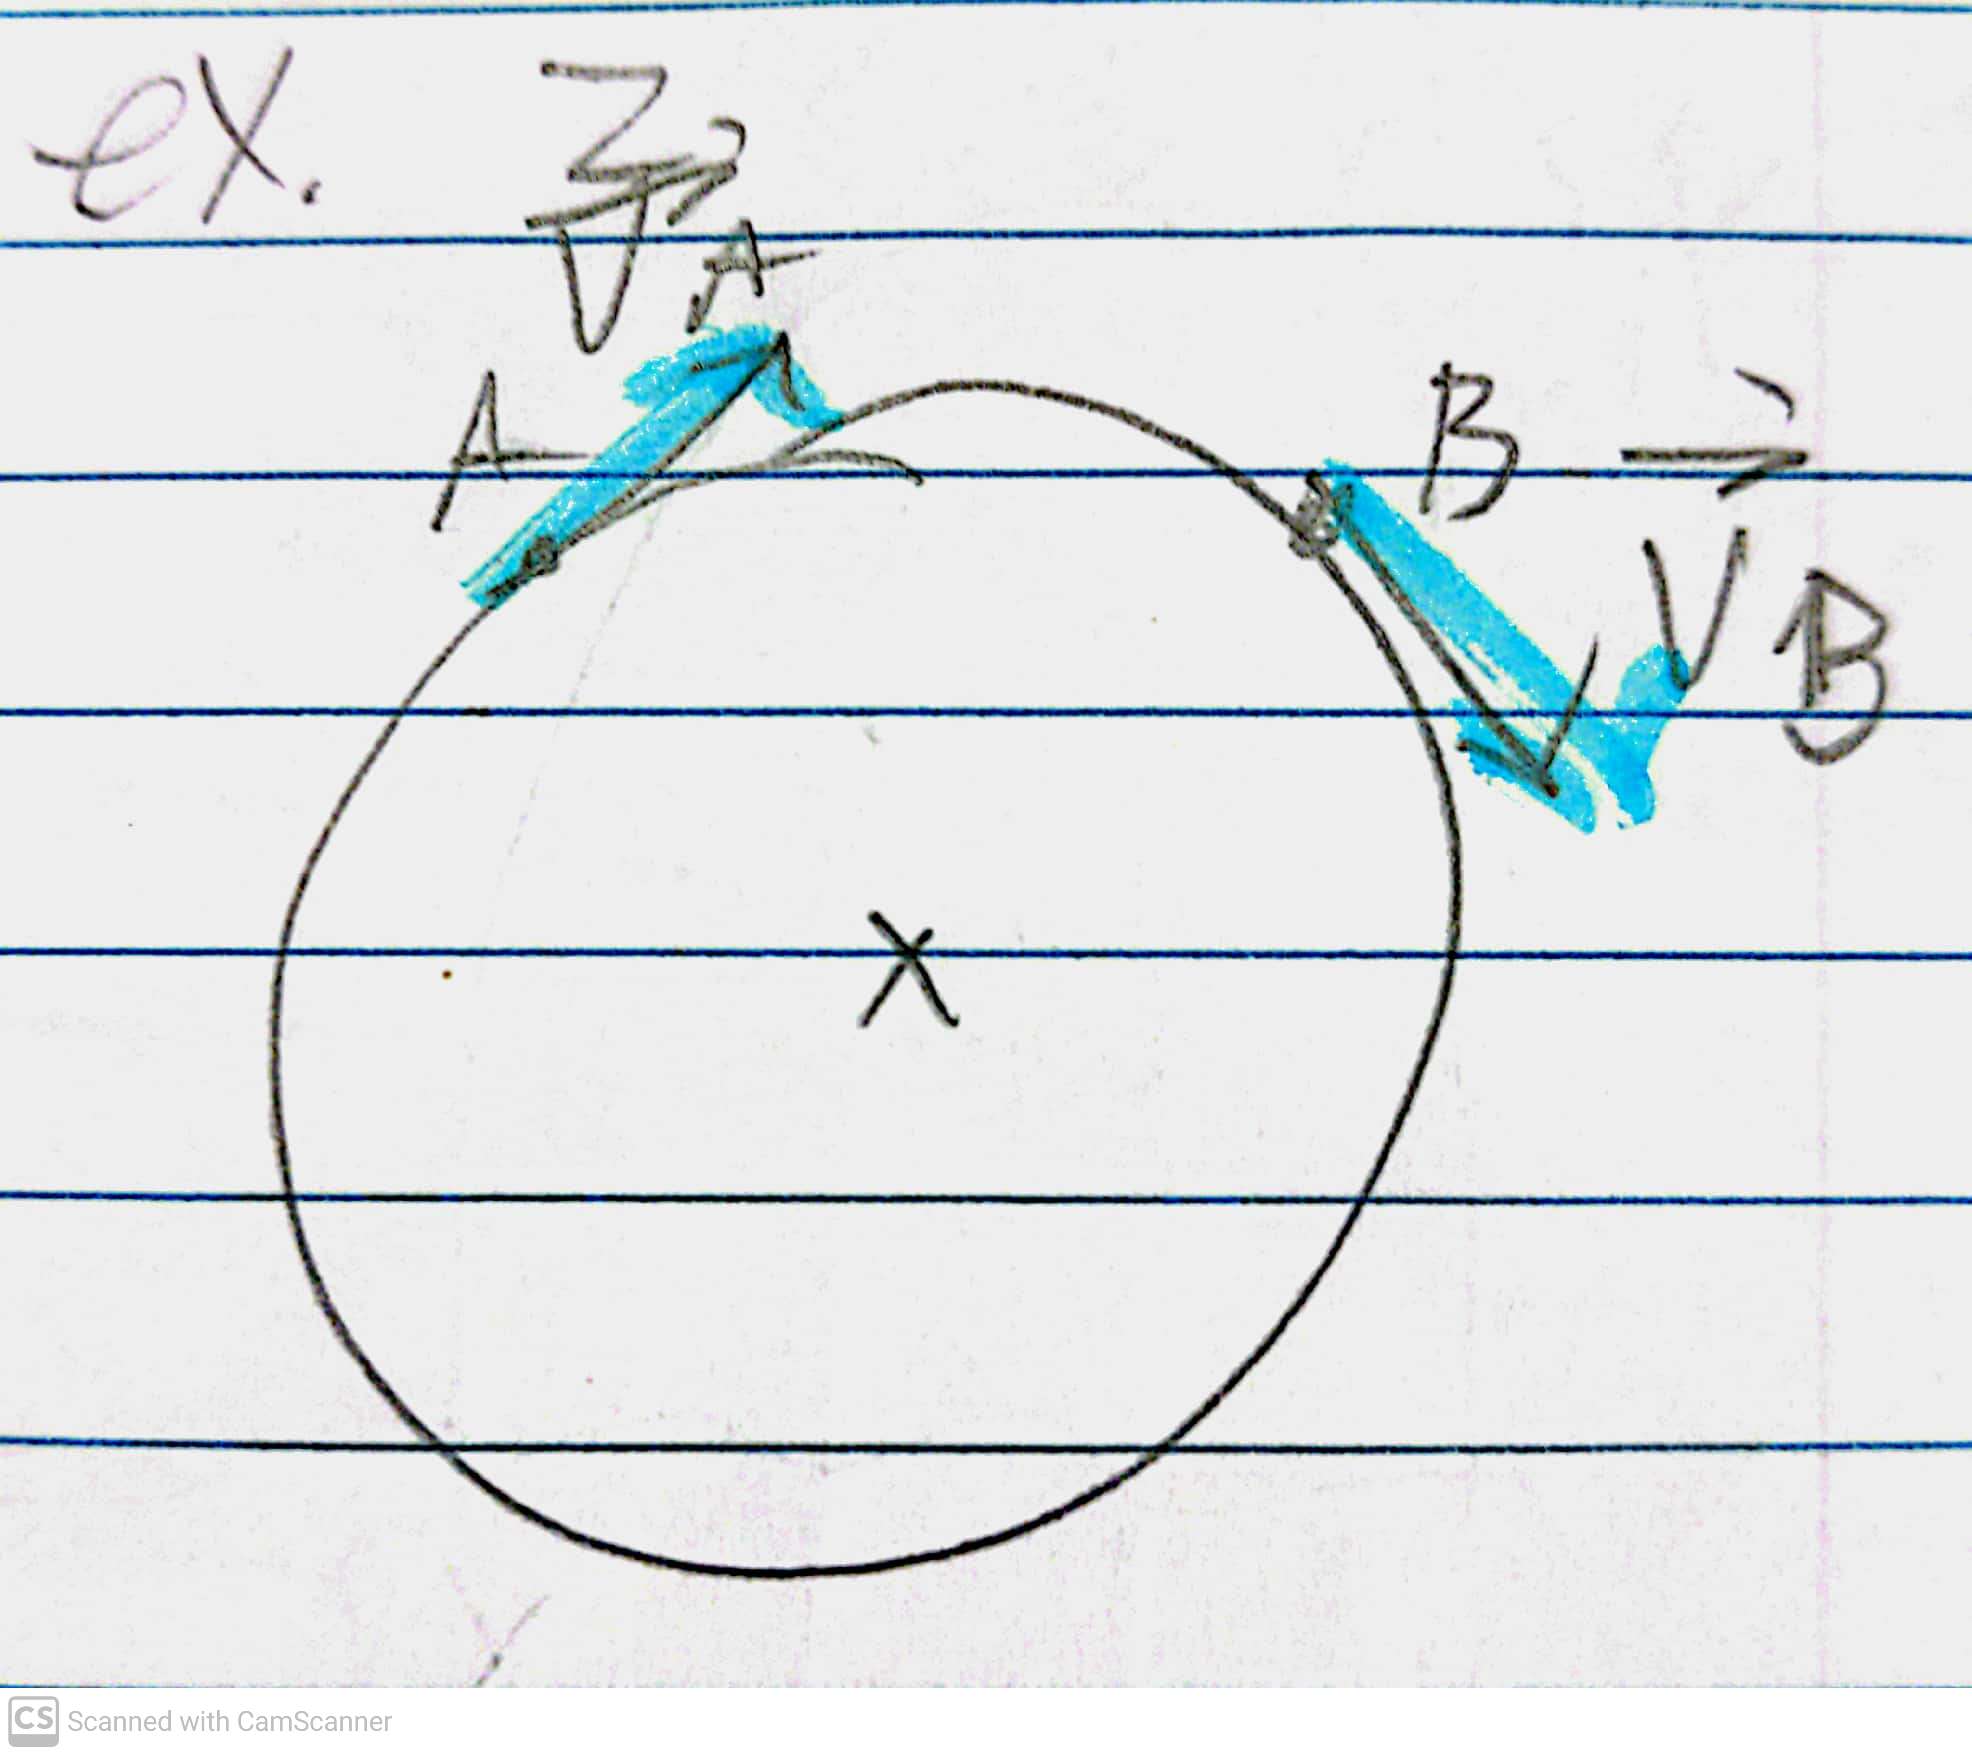 ex.
V⃗ A
A
B
V⃗ B
X
CS Scanned with CamScanner